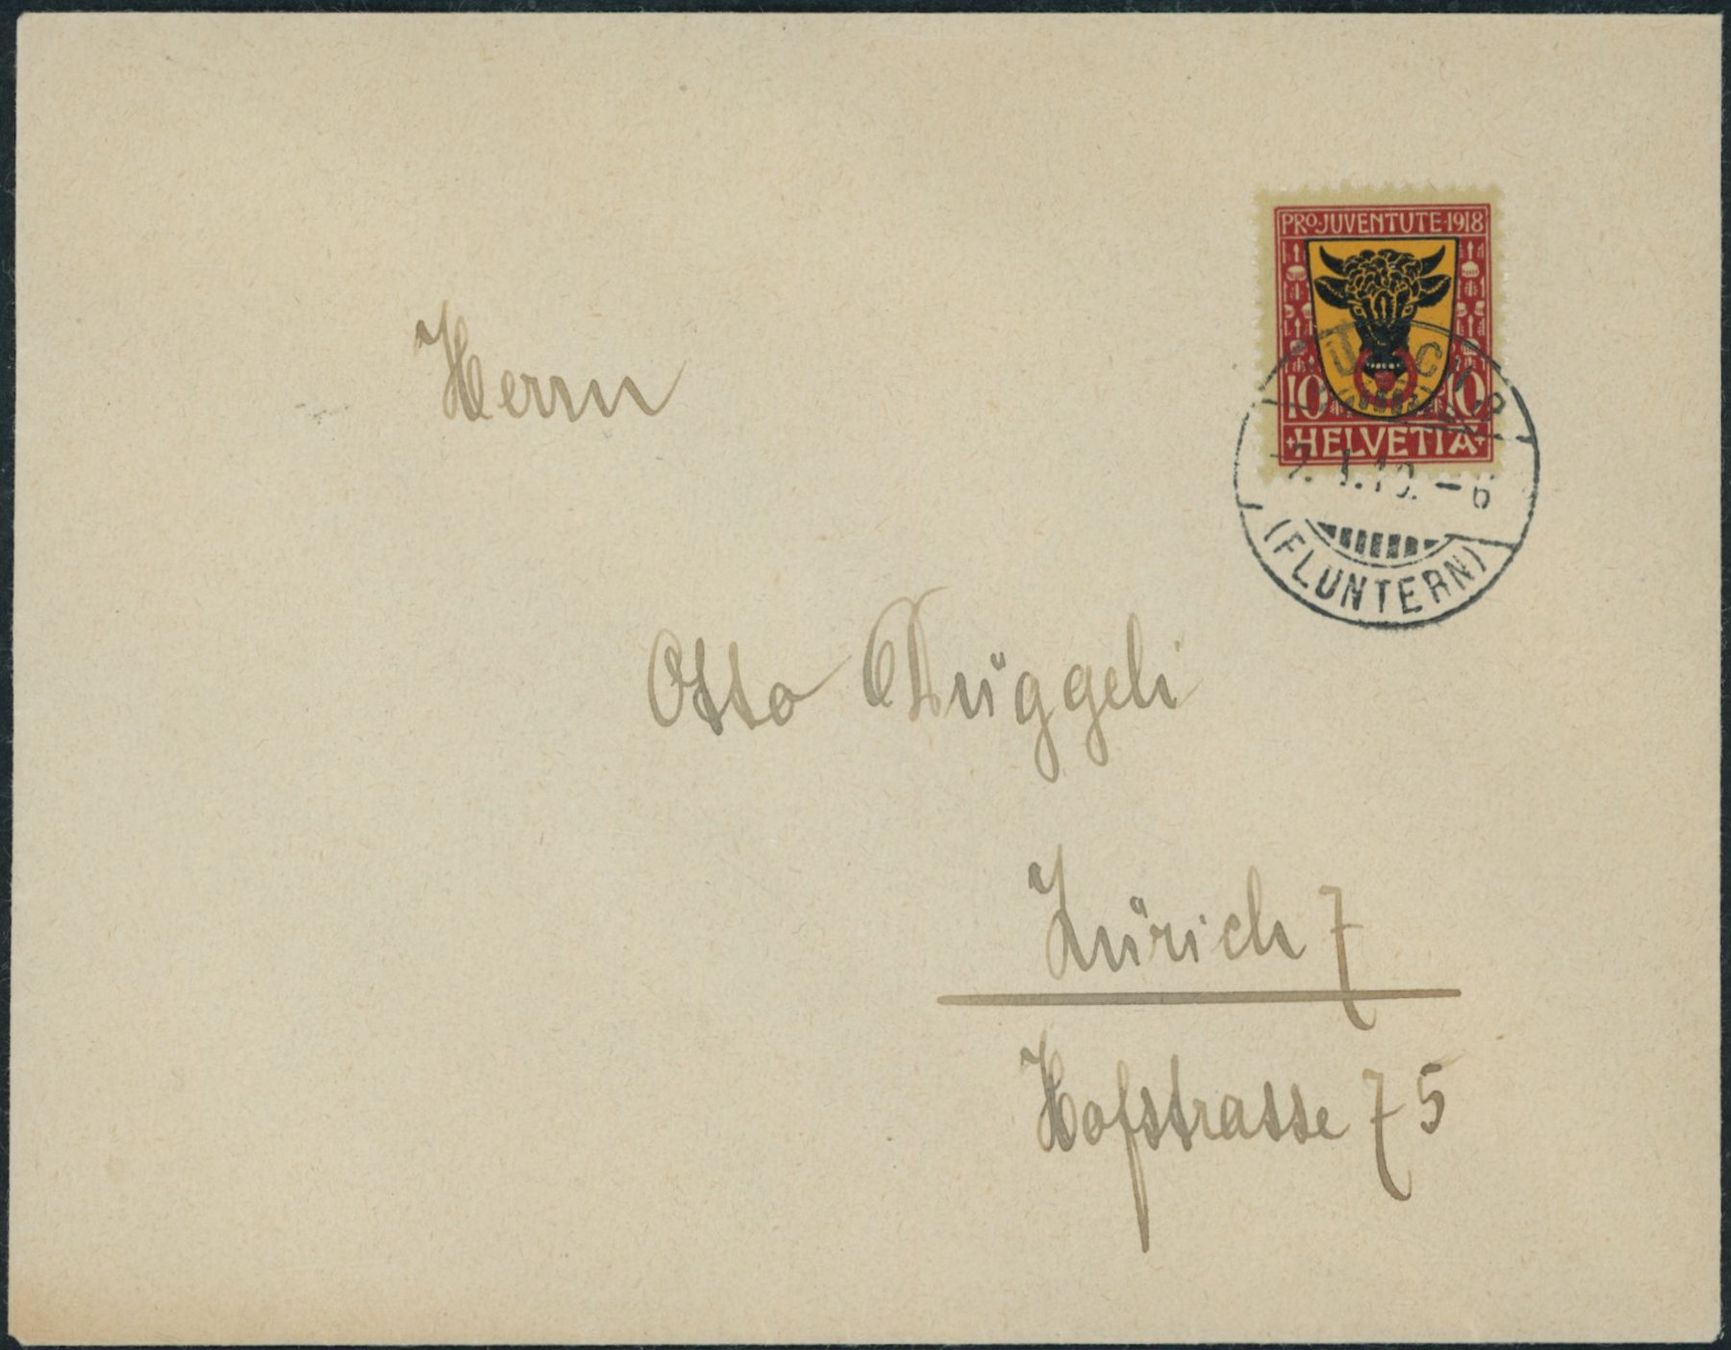 PRO·JUVENTUTE·1918
10 10
HELVETIA
(FLUNTERN)
Herrn
Otto Düggeli
Zürich 7
Hofstrasse 75